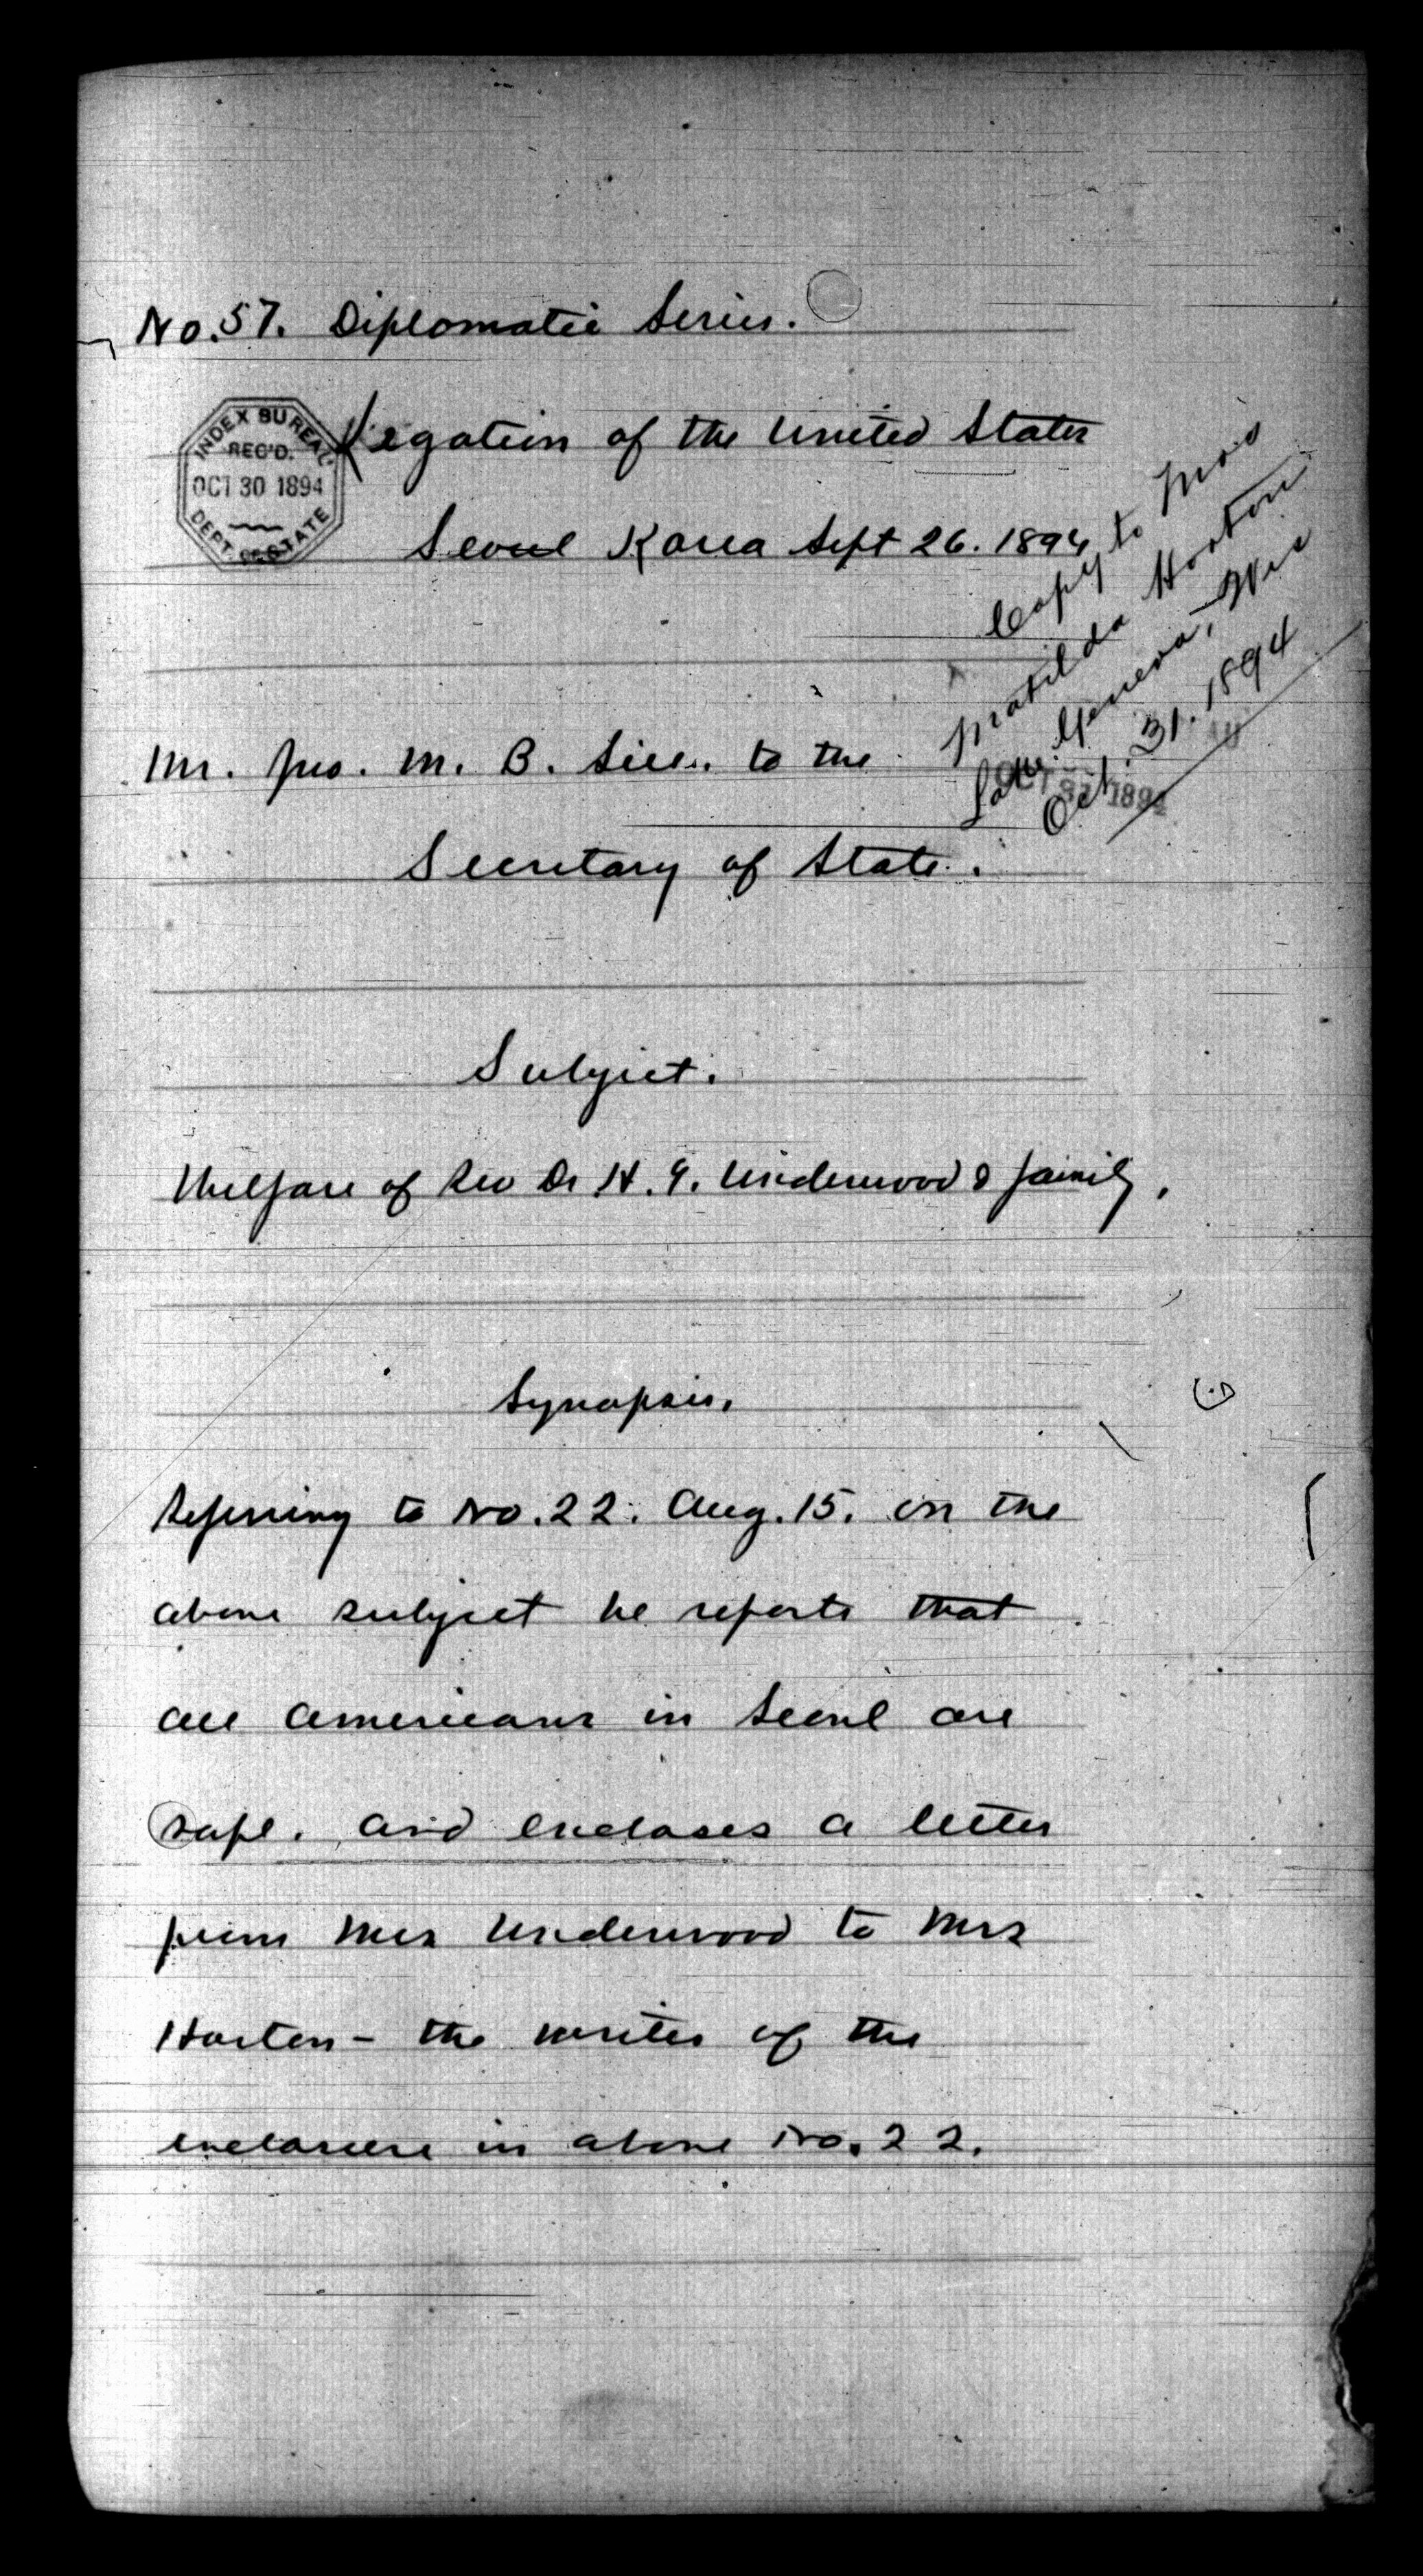 No. 57. Diplomatic Series.
INDEX BUREAU
REC'D.
OCT 30 1894
DEPT. OF STATE
Legation of the United States
Seoul Korea Sept 26. 1894
Copy to Mrs
Matilda Horton
Lake Geneva, Wis
Oct. 31. 1894
OCT 31 1894
Mr. Jno. M. B. Sill. to the
Secretary of State.
Subject.
Welfare of Rev Dr H. G. Underwood & family.
Synopsis.
Referring to No. 22. Aug. 15. on the
above subject he reports that
all Americans in Seoul are
safe. and encloses a letter
from Mrs Underwood to Mrs
Horton - the writer of the
enclosure in above No. 22.